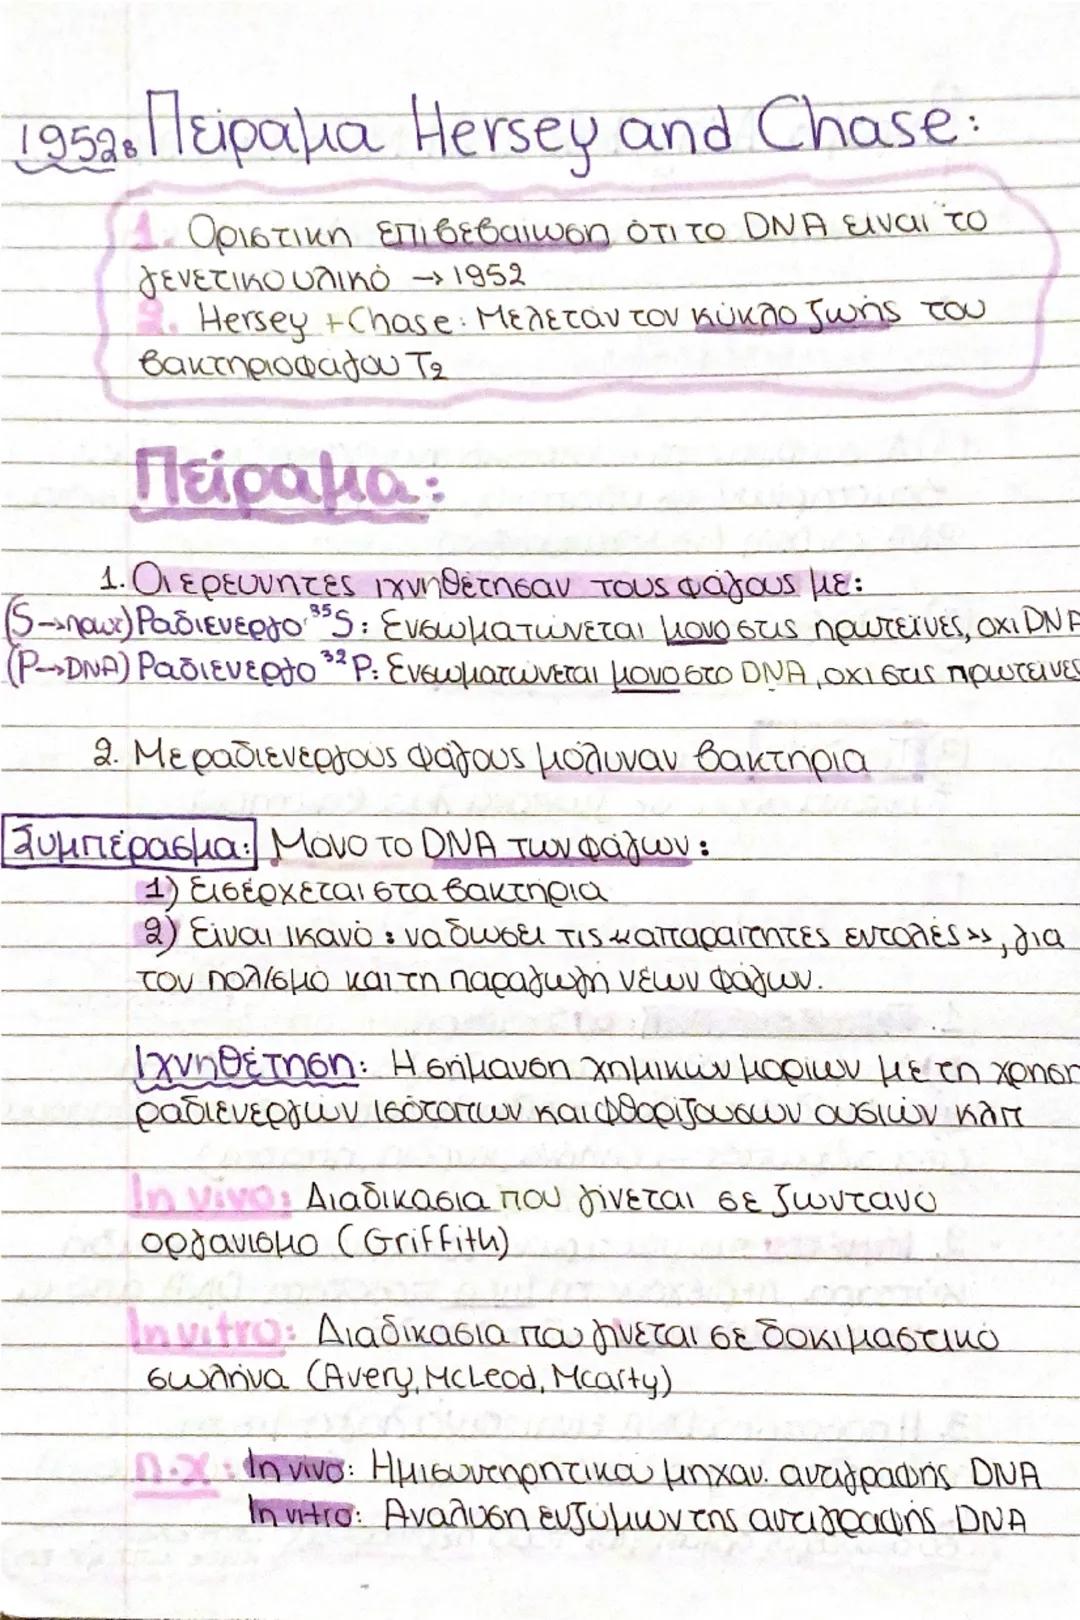 1952: Πείραμα Hersey and Chase:
1. Οριστικη επιβεβαίωση ότι το DNA είναι το
γενετικο υλικό → 1952
2. Hersey + Chase: Μελεταν τον κύκλο ζωής του
βακτηριοφαγου T2
Πείραμα:
1. Οι ερευνητες ιχνηθέτησαν τους φάγους με:
(S→πρωτ) Ραδιενεργο ³⁵S: Ενσωματώνεται μονο στις πρωτεϊνες, οχι DNA
(P→DNA) Ραδιενεργο ³²P: Ενσωματώνεται μονο στο DNA, οχι στις πρωτεινες
2. Με ραδιενεργους φάγους μόλυναν βακτήρια
Συμπέρασμα: Μονο το DNA των φάγων:
1) Εισέρχεται στα βακτήρια
2) Είναι ικανο: να δωσει τις «απαραιτητες εντολές», για
τον πολ/σμο και τη παραγωγή νέων φάγων.
Ιχνηθέτηση: Η σήμανση χημικών μοριων με τη χρηση
ραδιενεργών ισότοπων και φθοριζουσων ουσιών κλπ
In vivo: Διαδικασια που γίνεται σε ζωντανο
οργανισμο (Griffith)
In vitro: Διαδικασια που γινεται σε δοκιμαστικο
σωλήνα (Avery, McLeod, Mcarty)
π.χ: In vivo: Ημισυντηρητικα μηχαν. αντιγραφής DNA
In vitro: Αναλυση ενζύμων της αντιγραφής DNA